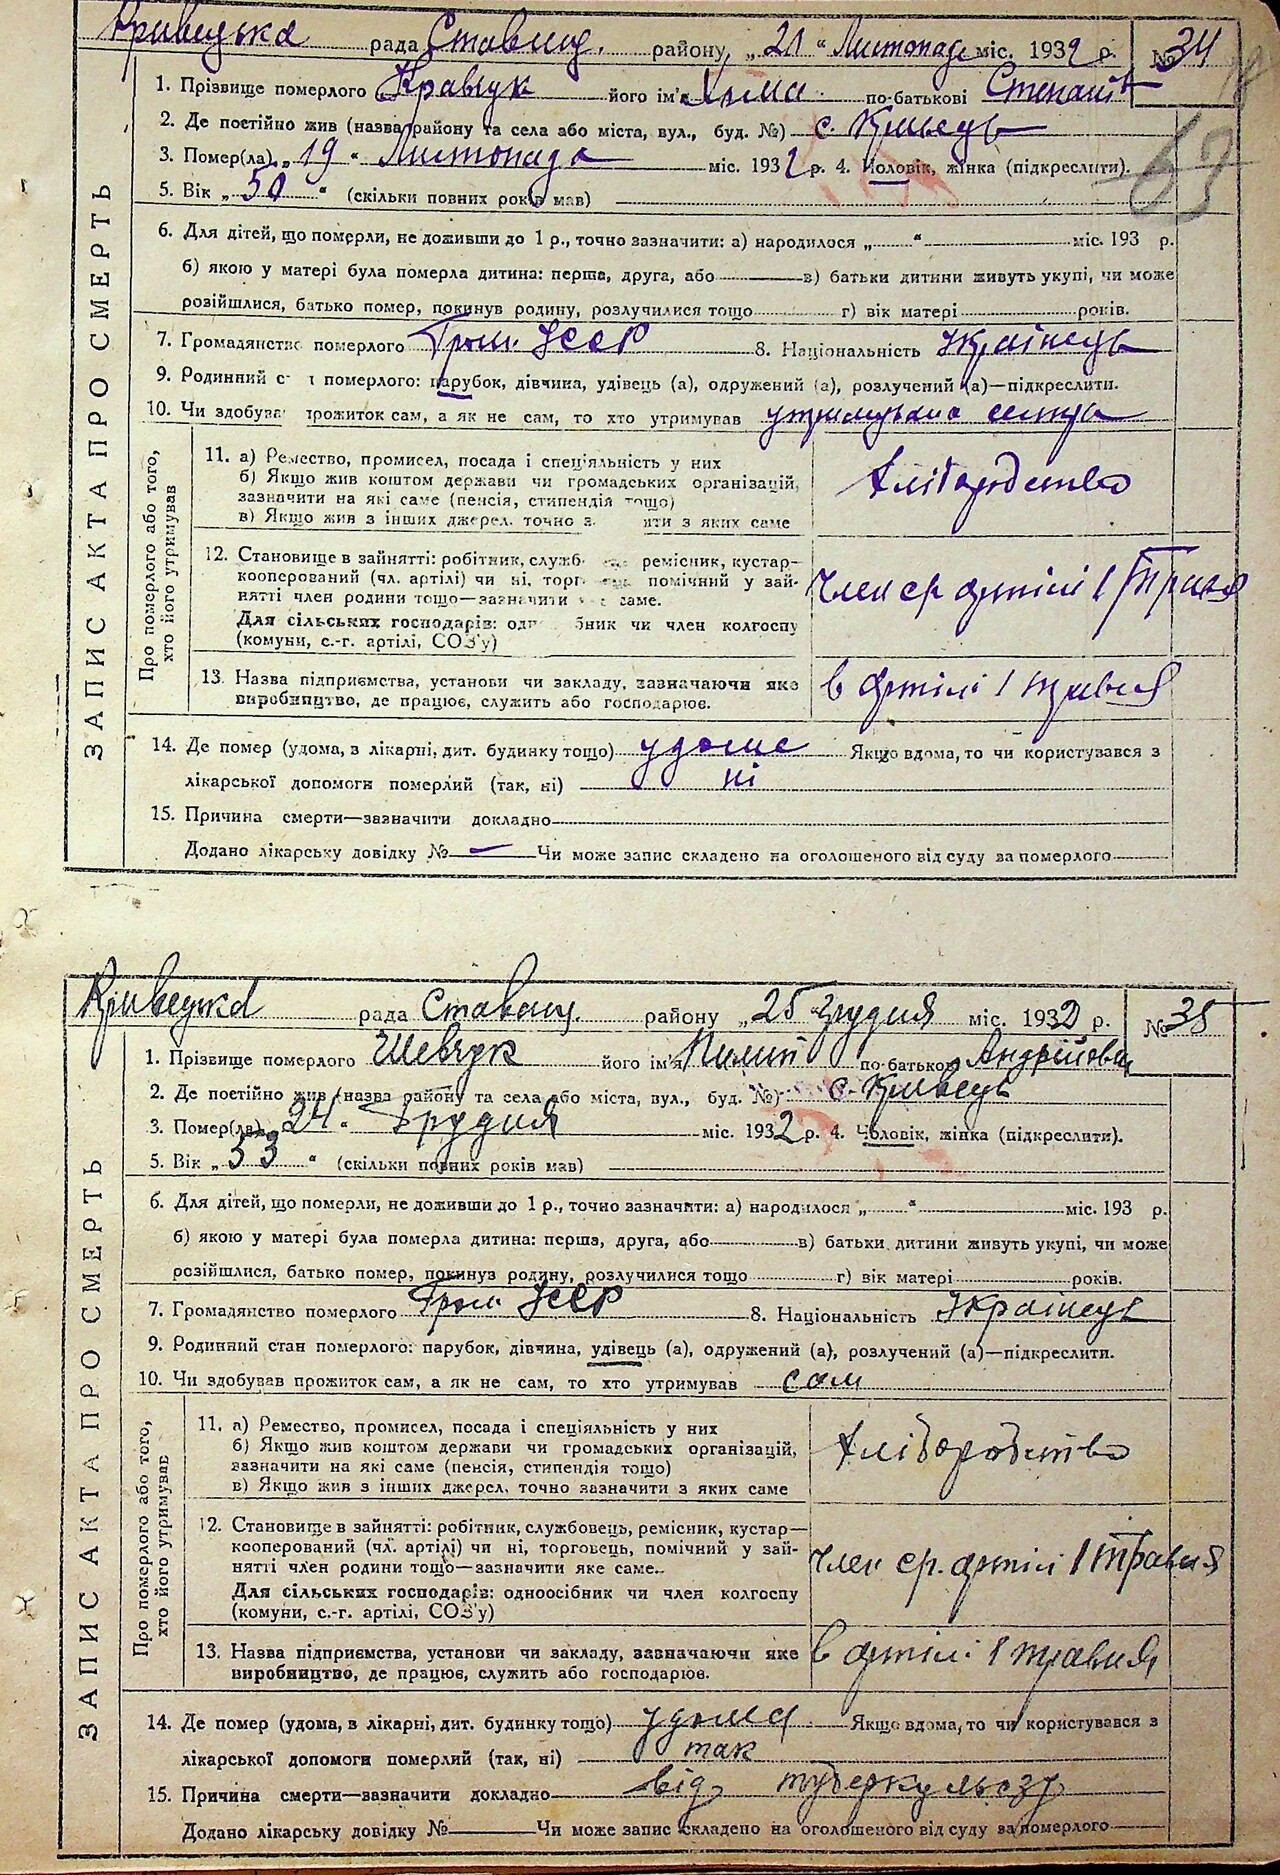 Кривецька рада Ставищ. району, „21“ Листопада міс. 1932 р. № 34
1. Прізвище померлого Кравчук його ім'я Хома по-батькові
2. Де постійно жив (назва району та села або міста, вул., буд. №) с. Кривець
3. Помер(ла) „19“ Листопада міс. 1932 р. 4. Чоловік, жінка (підкреслити).
63
5. Вік „50“ (скільки повних років мав)
6. Для дітей, що померли, не доживши до 1 р., точно зазначити: а) народилося „ “ міс. 193 р.
б) якою у матері була померла дитина: перша, друга, або в) батьки дитини живуть укупі, чи може
розійшлися, батько помер, покинув родину, розлучилися тощо г) вік матері років.
7. Громадянство померлого Гром. УССР 8. Національність Українець
9. Родинний с і померлого: парубок, дівчина, удівець (а), одружений (а), розлучений (а)—підкреслити.
10. Чи здобува прожиток сам, а як не сам, то хто утримував утримувала сестра
ЗАПИС АКТА ПРО СМЕРТЬ
Про померлого або того, хто його утримував
11. а) Ремество, промисел, посада і спеціяльність у них
б) Якщо жив коштом держави чи громадських організацій,
зазначити на які саме (пенсія, стипендія тощо)
в) Якщо жив з інших джерел, точно з ити з яких саме
Хліборобство
12. Становище в зайнятті: робітник, служб ремісник, кустар—
кооперований (чл. артілі) чи ні, торг помічний у зай-
нятті член родини тощо—зазначити саме.
Для сільських господарів: од бник чи член колгоспу
(комуни, с.-г. артілі, СОЗ'у)
Член ср. артілі 1 Травня
13. Назва підприємства, установи чи закладу, зазначаючи яке
виробництво, де працює, служить або господарює.
в артілі 1 травня
14. Де помер (удома, в лікарні, дит. будинку тощо) удома Якщо вдома, то чи користувався з
лікарської допомоги померлий (так, ні) ні
15. Причина смерти—зазначити докладно
Додано лікарську довідку № — Чи може запис складено на оголошеного від суду за померлого
Кривецька рада Ставищ. району „25“ Грудня міс. 1932 р. № 35
1. Прізвище померлого Шевчук його ім'я Пилип по-батькові Андрійович
2. Де постійно жив (назва району та села або міста, вул., буд. №) с. Кривець
3. Помер(ла) „24“ Грудня міс. 1932 р. 4. Чоловік, жінка (підкреслити).
5. Вік „53“ (скільки повних років мав)
6. Для дітей, що померли, не доживши до 1 р., точно зазначити: а) народилося „ “ міс. 193 р.
б) якою у матері була померла дитина: перша, друга, або в) батьки дитини живуть укупі, чи може
розійшлися, батько помер, покинув родину, розлучилися тощо г) вік матері років.
7. Громадянство померлого Гром. УССР 8. Національність Українець
9. Родинний стан померлого: парубок, дівчина, удівець (а), одружений (а), розлучений (а)—підкреслити.
10. Чи здобував прожиток сам, а як не сам, то хто утримував сам
ЗАПИС АКТА ПРО СМЕРТЬ
Про померлого або того, хто його утримував
11. а) Ремество, промисел, посада і спеціяльність у них
б) Якщо жив коштом держави чи громадських організацій,
зазначити на які саме (пенсія, стипендія тощо)
в) Якщо жив з інших джерел, точно зазначити з яких саме
Хліборобство
12. Становище в зайнятті: робітник, службовець, ремісник, кустар—
кооперований (чл. артілі) чи ні, торговець, помічний у зай-
нятті член родини тощо—зазначити яке саме.
Для сільських господарів: одноосібник чи член колгоспу
(комуни, с.-г. артілі, СОЗ'у)
член ср. артілі 1 Травня
13. Назва підприємства, установи чи закладу, зазначаючи яке
виробництво, де працює, служить або господарює.
в артілі 1 травня
14. Де помер (удома, в лікарні, дит. будинку тощо) удома Якщо вдома, то чи користувався з
лікарської допомоги померлий (так, ні) так
15. Причина смерти—зазначити докладно від туберкульозу
Додано лікарську довідку № Чи може запис складено на оголошеного від суду за померлого